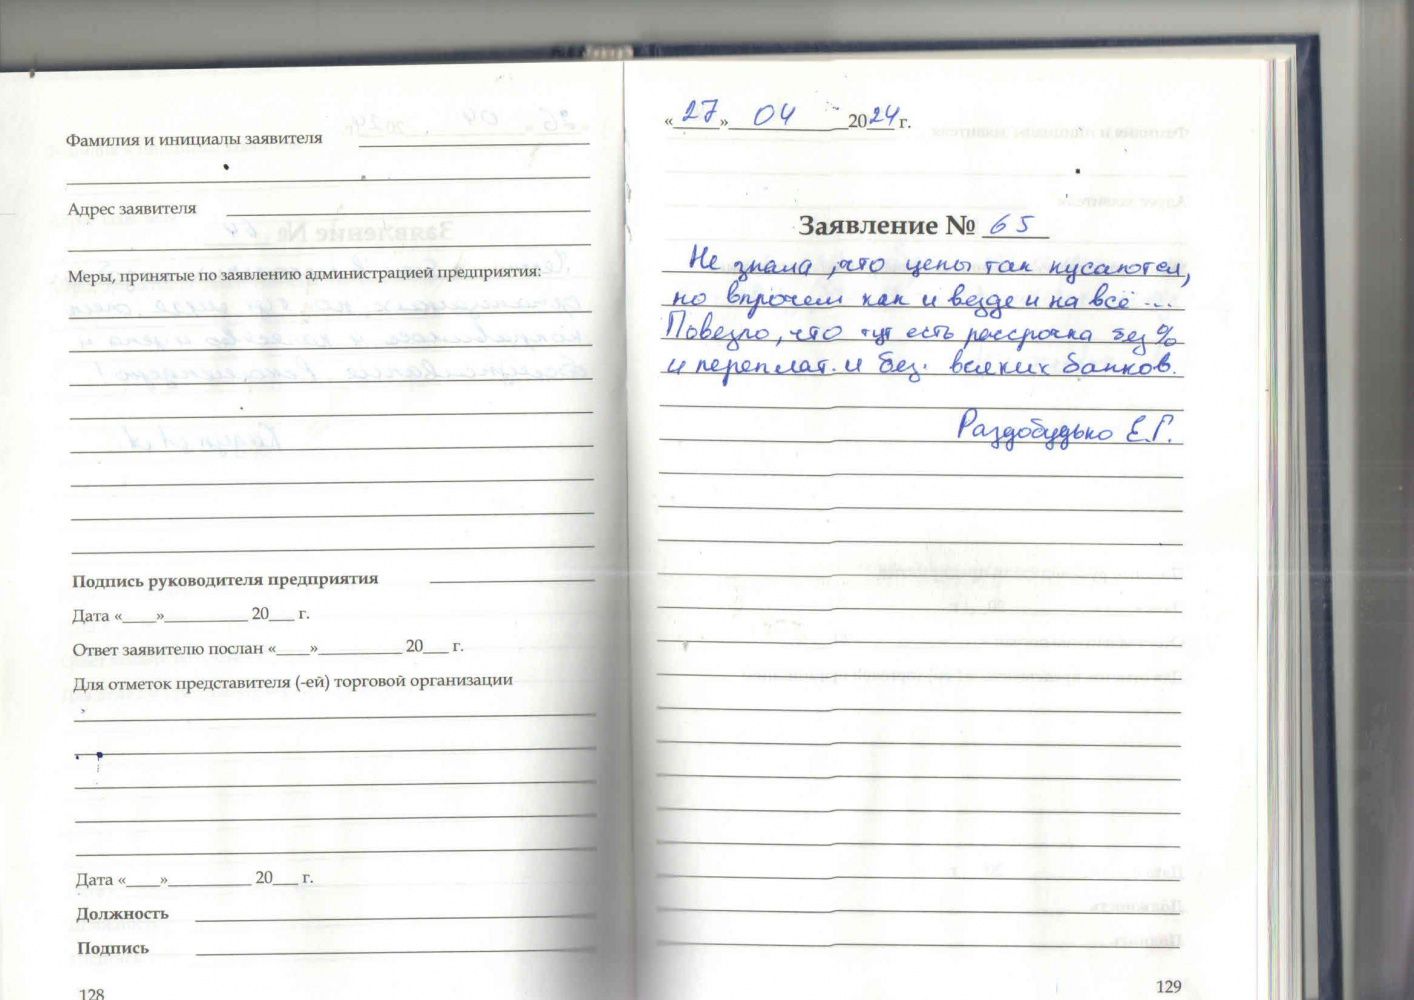 Фамилия и инициалы заявителя
Адрес заявителя
Меры, принятые по заявлению администрацией предприятия:
Подпись руководителя предприятия
Дата «____»__________ 20___ г.
Ответ заявителю послан «____»__________ 20___ г.
Для отметок представителя (-ей) торговой организации
Дата «____»__________ 20___ г.
Должность
Подпись
128
«27» 04 2024 г.
Заявление № 65
Не знала, что цены так кусаются,
но впрочем как и везде и на всё ...
Повезло, что тут есть рассрочка без %
и переплат. и без. всяких банков.
Раздобудько Е.Г.
129